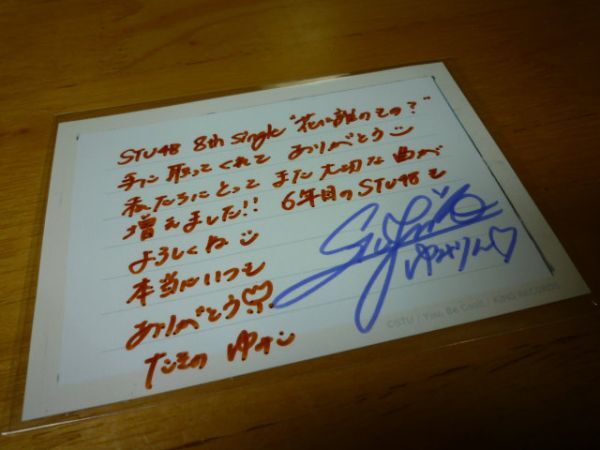 STU48 8th Single "花は誰のもの?"
手に取ってくれて ありがとう
私たちにとって また大切な曲が
増えました!! 6年目のSTU48も
よろしくね
本当にいつも
ありがとう♡
ゆみりん♡
©STU / You, Be Cool! / KING RECORDS